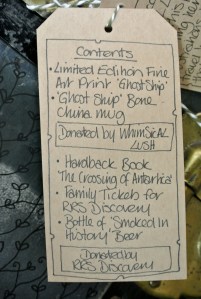 Contents
• Limited Edition Fine
Art Print 'Ghost Ship'
• 'Ghost Ship' Bone
China mug
Donated by WHIMSICAL
LUSH
• Hardback Book
'The Crossing of Antarctica'
• Family Tickets for
RRS Discovery
• Bottle of 'Smoked in
History' Beer
Donated by
RRS Discovery